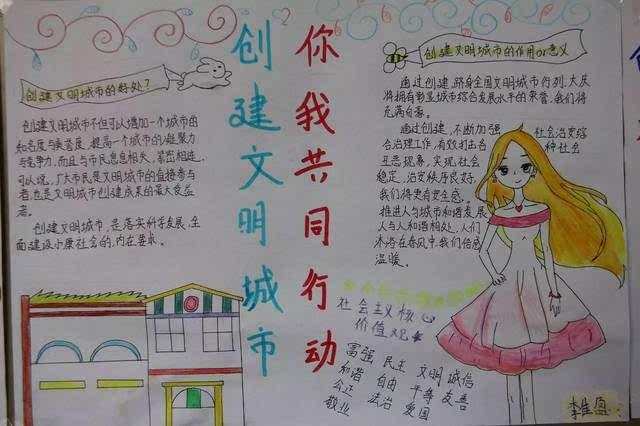 创建文明城市
你我共同行动
创建文明城市的好处?
创建文明城市不但可以增加一个城市的
知名度与美誉度,提高一个城市的凝聚力
与竞争力,而且与市民息息相关,紧密相连,
可以说,广大市民是文明城市的直接参与
者,也是文明城市创建成果的最大受益
者。
创建文明城市,是落实科学发展,全
面建设小康社会的内在要求。
创建文明城市的作用or意义
通过创建,跻身全国文明城市行列,大庆
将拥有彰显城市综合发展水平的荣誉,我们将
充满自豪。
通过创建,不断加强社会治安综
合治理工作,有效打击各种社会
丑恶现象,实现社会
稳定,治安秩序良好,
我们将更有安全感。
推进人与城市和谐发展
人与人和谐相处,人们
沐浴在春风中,我们倍感
温暖。
社会主义核心
价值观
富强 民主 文明 诚信
和谐 自由 平等 友善
公正 法治 爱国
敬业